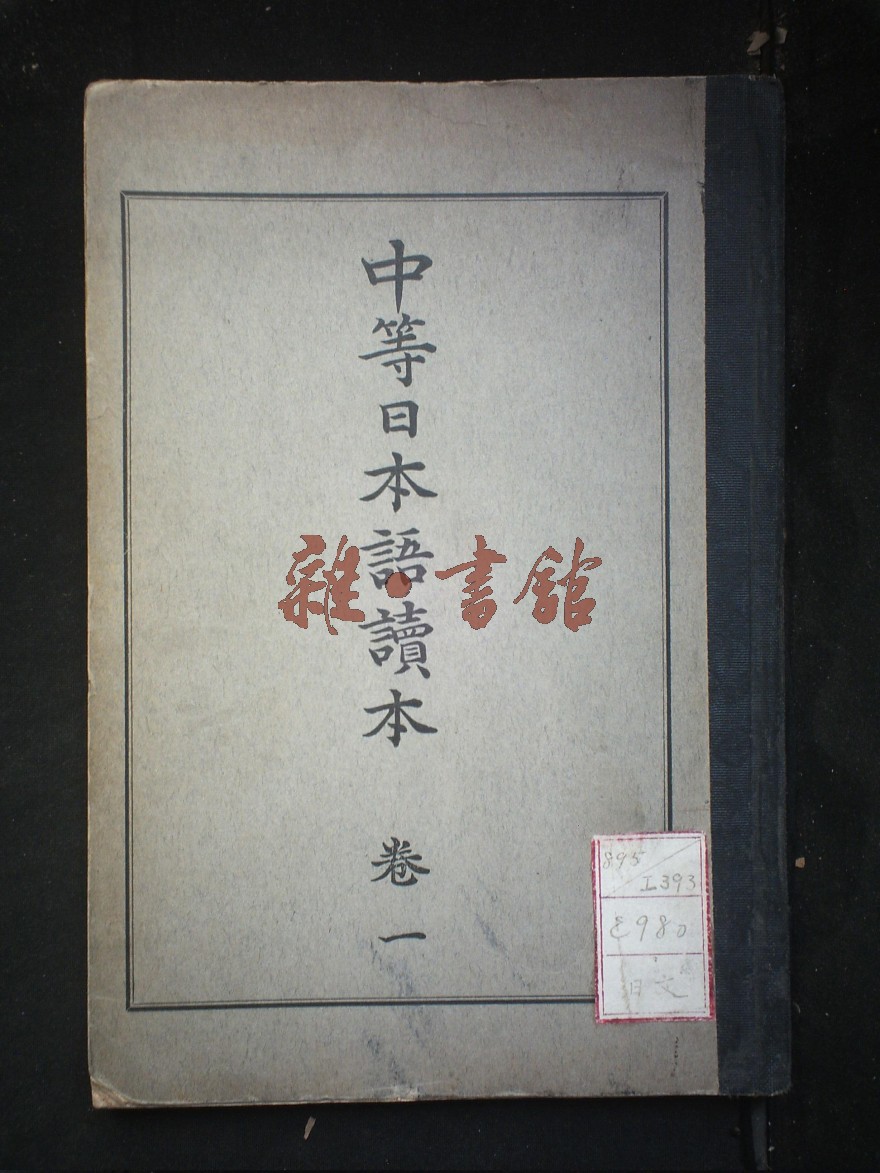 中等日本語讀本 卷一
雜·書舘
895
I393
E980
日文